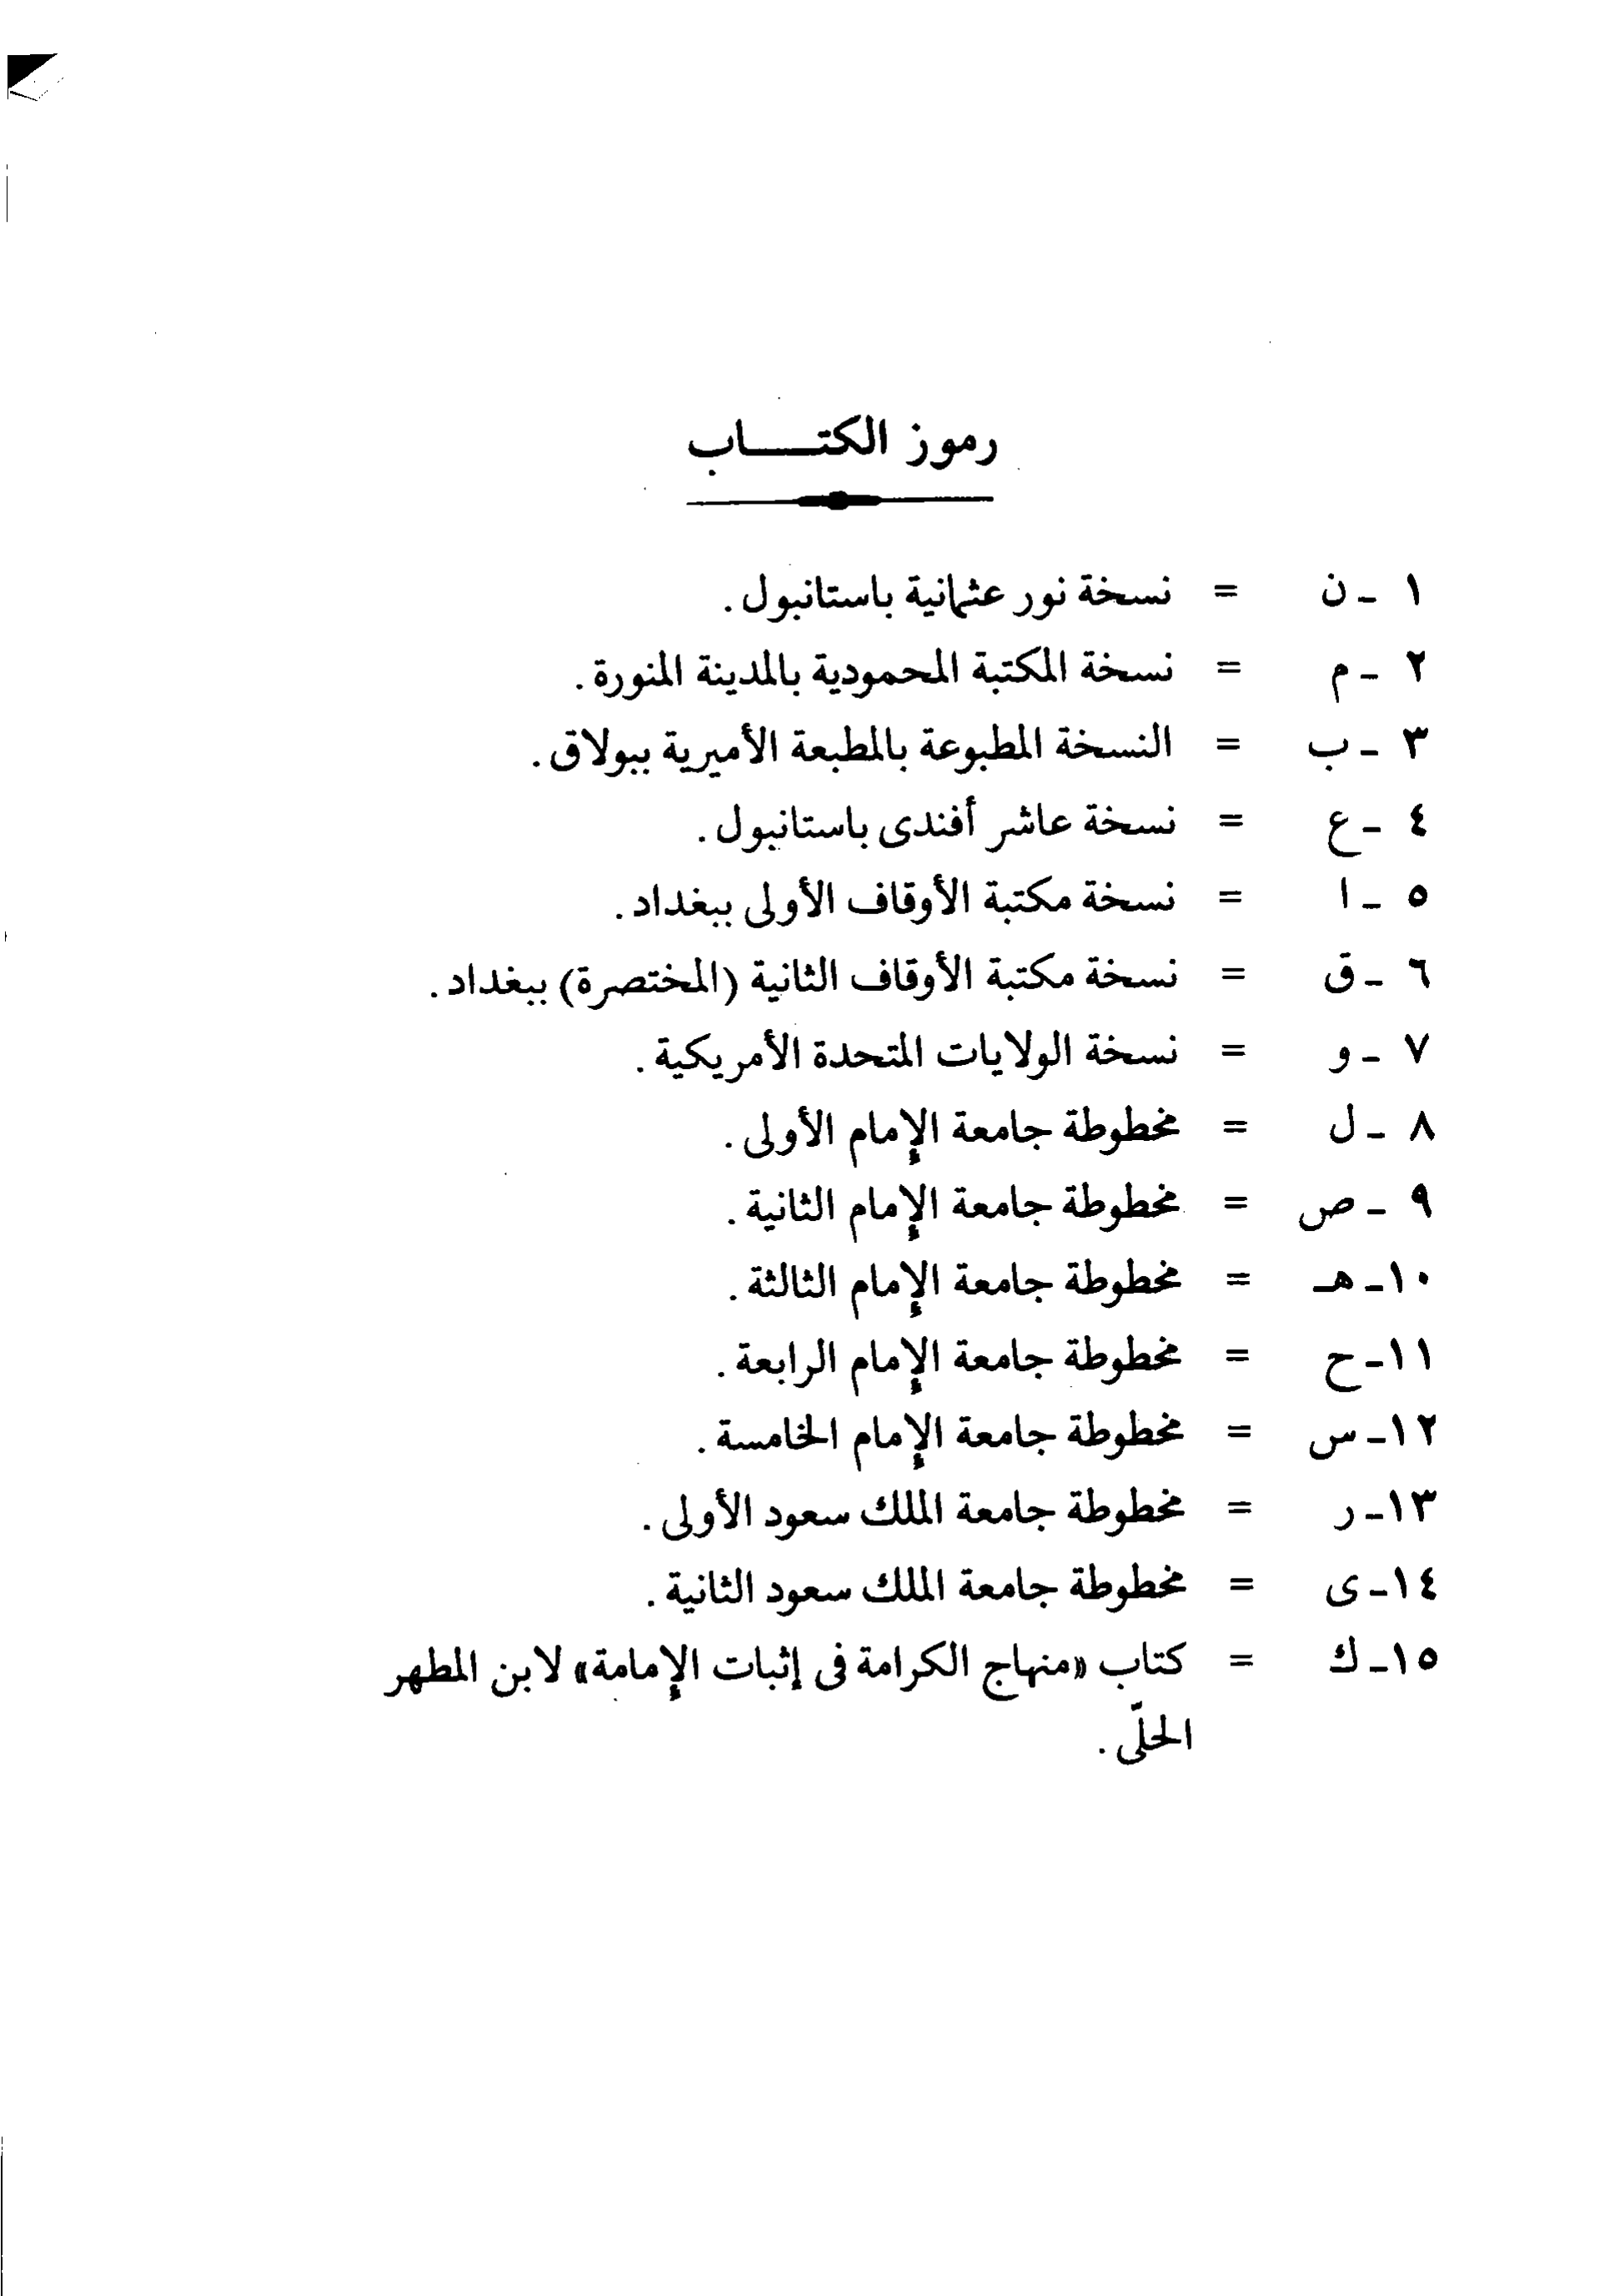 رموز الكتـــــاب
١ - ن = نسخة نور عثمانية باستانبول .
٢ - م = نسخة المكتبة المحمودية بالمدينة المنورة .
٣ - ب = النسخة المطبوعة بالمطبعة الأميرية ببولاق .
٤ - ع = نسخة عاشر أفندى باستانبول .
٥ - ا = نسخة مكتبة الأوقاف الأولى ببغداد .
٦ - ق = نسخة مكتبة الأوقاف الثانية (المختصرة) ببغداد .
٧ - و = نسخة الولايات المتحدة الأمريكية .
٨ - ل = مخطوطة جامعة الإمام الأولى .
٩ - ص = مخطوطة جامعة الإمام الثانية .
١٠- هـ = مخطوطة جامعة الإمام الثالثة .
١١- ح = مخطوطة جامعة الإمام الرابعة .
١٢- س = مخطوطة جامعة الإمام الخامسة .
١٣- ر = مخطوطة جامعة الملك سعود الأولى .
١٤- ى = مخطوطة جامعة الملك سعود الثانية .
١٥- ك = كتاب «منهاج الكرامة فى إثبات الإمامة» لابن المطهر
الحلّى .